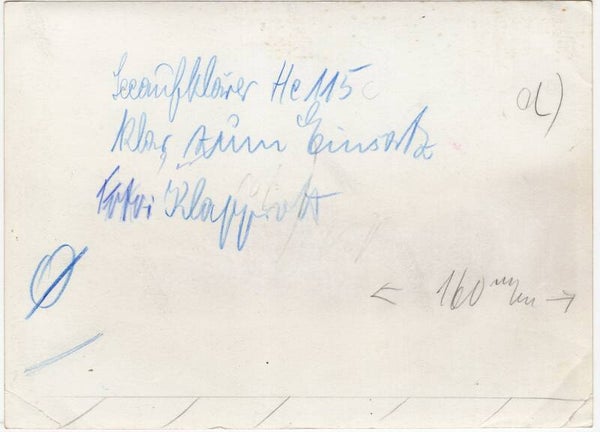 Seeaufklärer He 115 c
klar zum Einsatz
Foto: Klapproth
← 160 mm →